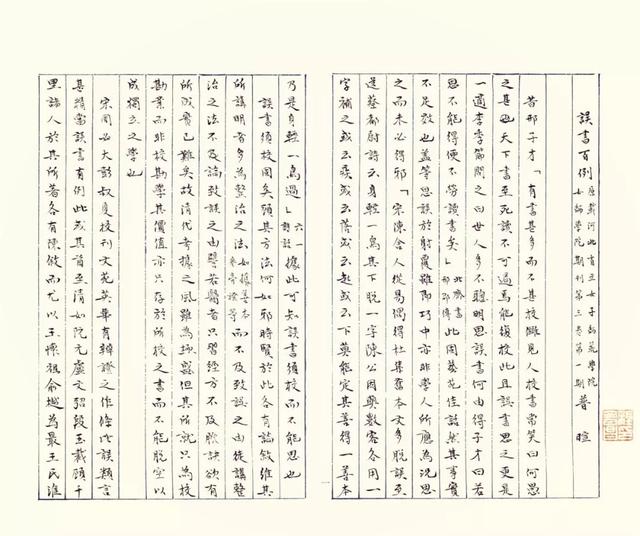 誤書百例 原載河北省立女子師範學院
女師學院期刊第三卷第一期 普暄
昔邢子才「有書甚多而不甚校讎見人校書常笑曰何愚
之甚也天下書至死讀不可遍焉能復校此且誤書思之更是
一適李季節問之曰世人多不聰明思誤書何由得子才曰若
思不能得便不勞讀書矣」北齊書邢邵傳此固藝苑佳話然其事實
不足效也蓋苦思誤於射覆雖即巧中亦非學人所應為況思
之而未必得邪「宋陳舍人從易偶得杜集舊本文多脫誤至
送蔡都尉詩云身輕一鳥其下脫一字陳公因與數客各用一
字補之或云疾或云落或云起或云下莫能定其善得一善本
乃是身輕一鳥過」六一詩話據此可知誤書須校而不能思也
誤書須校固矣顧其方法何如邪時賢於此各有論敘維其
所講明者多為整治之法如據善本參旁證等而不及致誤之由徒講整
治之法不及論致誤之由譬若醫者只習經方不及脈訣欲有
所成實已難矣故清代考據之風雖為極盛但其所就只為校
勘業而非校勘學其價值亦只存於所校之書而不能脫空以
成獨立之學也
宋周必大彭叔夏校刊文苑英華有辨證之作條比誤類言
甚精當誤書有例此或其首至清如阮元盧文弨段玉裁顧千
里諸人於其所著各有陳敘而尤以王懷祖俞樾為最王氏淮